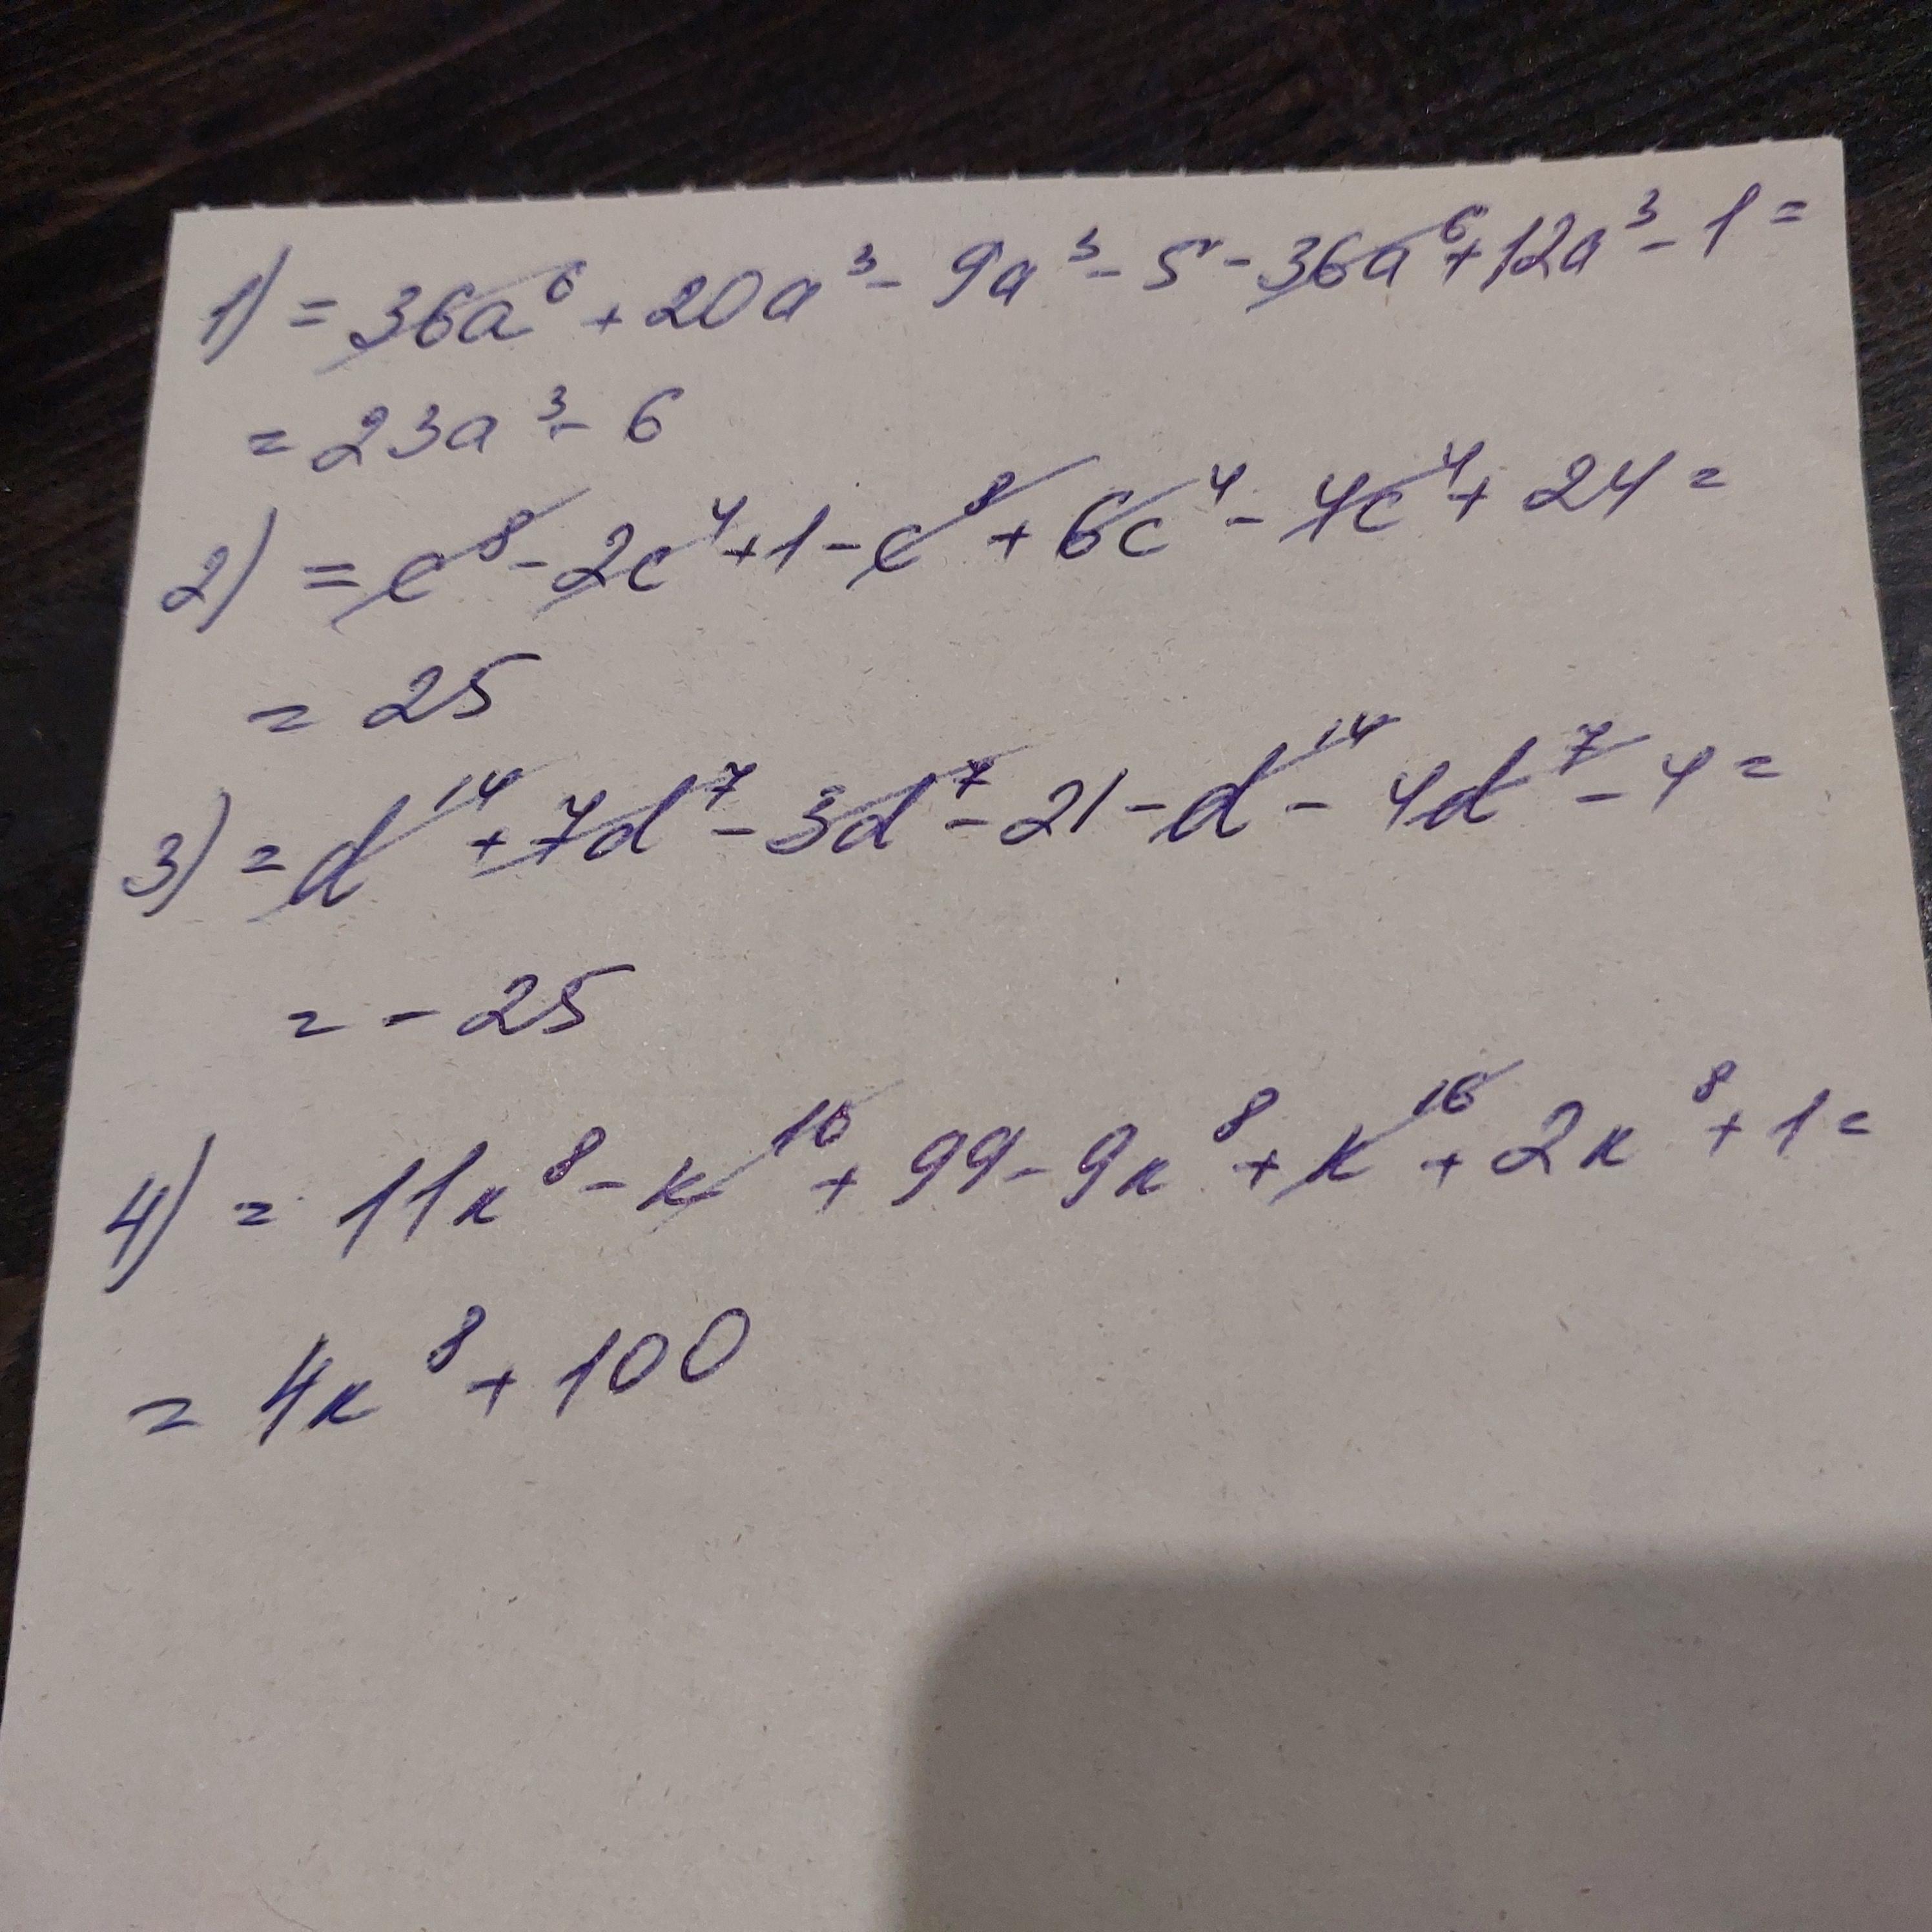 1) = 36a⁶ + 20a³ - 9a³ - 5 - 36a⁶ + 12a³ - 1 =
= 23a³ - 6
2) = c⁸ - 2c⁴ + 1 - c⁸ + 6c⁴ - 4c⁴ + 24 =
= 25
3) = d¹⁴ + 7d⁷ - 3d⁷ - 21 - d¹⁴ - 4d⁷ - 4 =
= - 25
4) = 11k⁸ - k¹⁶ + 99 - 9k⁸ + k¹⁶ + 2k⁸ + 1 =
= 4k⁸ + 100